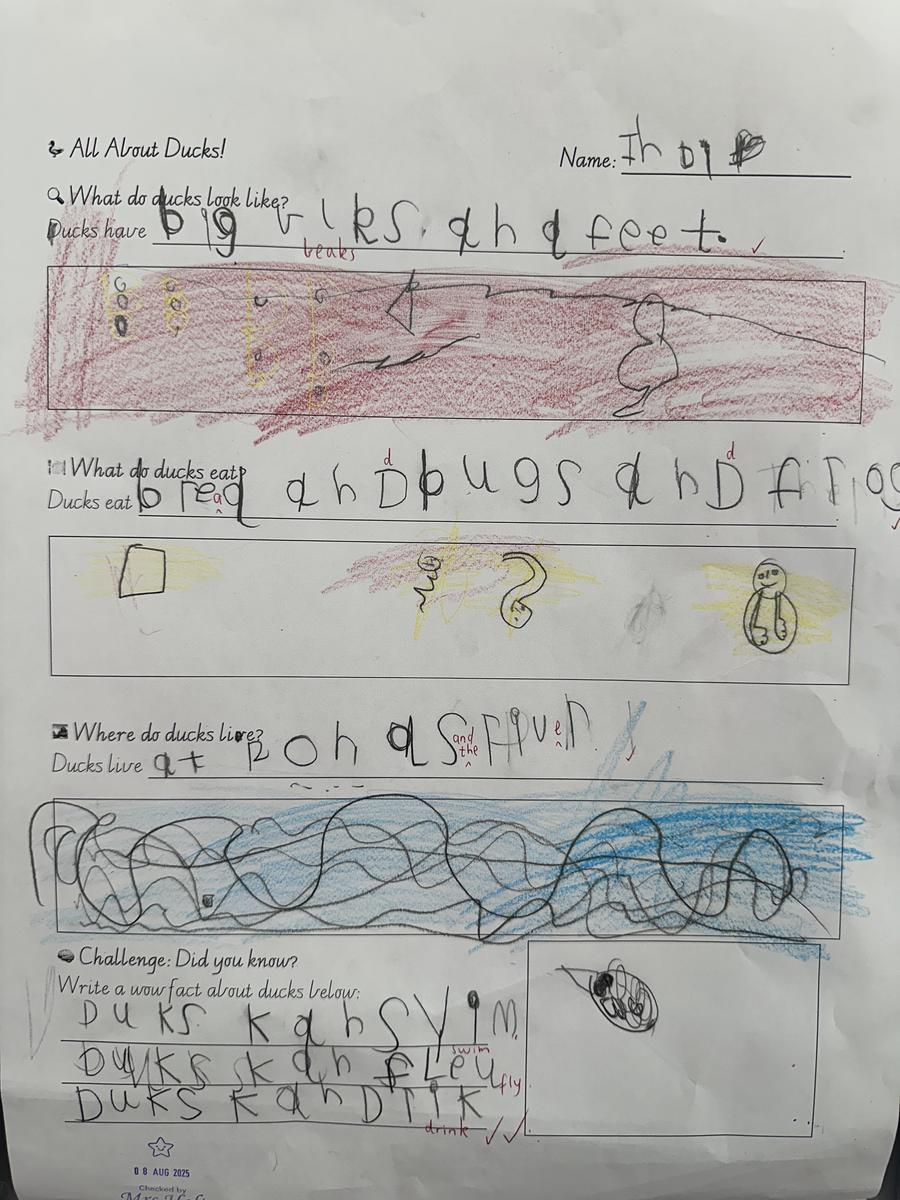 All About Ducks!
Name: Indi
What do ducks look like?
Ducks have big viks. and feet.
beaks
What do ducks eat?
Ducks eat bred anD bugs anD frog
a d d
Where do ducks live?
Ducks live at pons river.
and the e
Challenge: Did you know?
Write a wow fact about ducks below:
DuKS Kan SVim.
swim
DuKs kan fLeu
fly.
DuKS Kan DriK
drink
08 AUG 2025
Checked by
Mrs